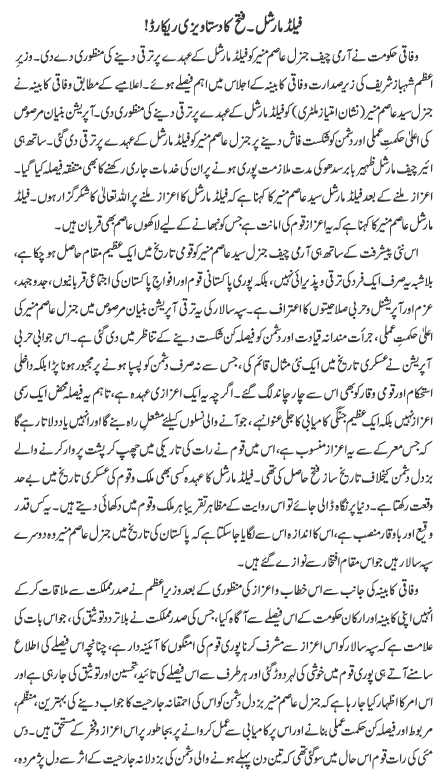 فیلڈ مارشل۔ فتح کا دستاویزی ریکارڈ!
وفاقی حکومت نے آرمی چیف جنرل عاصم منیر کو فیلڈ مارشل کے عہدے پر ترقی دینے کی منظوری دے دی۔ وزیرِ
اعظم شہباز شریف کی زیر صدارت وفاقی کابینہ کے اجلاس میں اہم فیصلے ہوئے۔ اعلامیے کے مطابق وفاقی کابینہ نے
جنرل سید عاصم منیر (نشان امتیاز ملٹری) کو فیلڈ مارشل کے عہدے پر ترقی دینے کی منظوری دی۔ آپریشن بنیان مرصوص
میں اعلیٰ حکمتِ عملی اور دشمن کو شکست فاش دینے پر جنرل عاصم منیر کو فیلڈ مارشل کے عہدے پر ترقی دی گئی۔ ساتھ ہی
ائیر چیف مارشل ظہیر بابر سدھو کی مدت ملازمت پوری ہونے پر ان کی خدمات جاری رکھنے کا بھی متفقہ فیصلہ کیا گیا۔
اعزاز ملنے کے بعد فیلڈ مارشل سید عاصم منیر کا کہنا ہے کہ فیلڈ مارشل کا اعزاز ملنے پر اللہ تعالیٰ کا شکر گزار ہوں۔ فیلڈ
مارشل عاصم منیر کا کہنا ہے کہ یہ اعزاز قوم کی امانت ہے جس کو نبھانے کے لیے لاکھوں عاصم بھی قربان ہیں۔
اس نئی پیشرفت کے ساتھ ہی آرمی چیف جنرل سید عاصم منیر کو قومی تاریخ میں ایک عظیم مقام حاصل ہو چکا ہے،
بلاشبہ یہ صرف ایک فرد کی ترقی و پذیرائی نہیں، بلکہ پوری پاکستانی قوم اور افواج پاکستان کی اجتماعی قربانیوں، جدوجہد،
عزم اور آپریشنل و حربی صلاحیتوں کا اعتراف ہے۔ سپہ سالار کی یہ ترقی آپریشن بنیان مرصوص میں جنرل عاصم منیر کی
اعلیٰ حکمتِ عملی، جرأت مندانہ قیادت اور دشمن کو فیصلہ کن شکست دینے کے تناظر میں دی گئی ہے۔ اس جوابی حربی
آپریشن نے عسکری تاریخ میں ایک نئی مثال قائم کی، جس سے نہ صرف دشمن کو پسپا ہونے پر مجبور ہونا پڑا بلکہ داخلی
استحکام اور قومی وقار کو بھی اس سے چار چاند لگ گئے۔ اگرچہ یہ ایک اعزازی عہدہ ہے، تاہم یہ فیصلہ محض ایک رسمی
اعزاز نہیں بلکہ ایک عظیم جنگی کامیابی کا جلی عنوان ہے، جو آنے والی نسلوں کیلئے مشعلِ راہ بنے گا اور انہیں یاد دلاتا رہے گا
کہ جس معرکے سے یہ اعزاز منسوب ہے، اس میں قوم نے رات کی تاریکی میں چھپ کر پشت پر وار کرنے والے
بزدل دشمن کیخلاف تاریخ ساز فتح حاصل کی تھی۔ فیلڈ مارشل کا عہدہ کسی بھی ملک و قوم کی عسکری تاریخ میں بے حد
وقعت رکھتا ہے۔ دنیا پر نگاہ ڈالی جائے تو اس روایت کے مظاہر تقریباً ہر ملک و قوم میں دکھائی دیتے ہیں۔ یہ کس قدر
وقیع اور باوقار منصب ہے، اس کا اندازہ اس سے لگایا جا سکتا ہے کہ پاکستان کی تاریخ میں جنرل عاصم منیر وہ دوسرے
سپہ سالار ہیں جو اس مقام افتخار سے نوازے گئے ہیں۔
وفاقی کابینہ کی جانب سے اس خطاب و اعزاز کی منظوری کے بعد وزیر اعظم نے صدر مملکت سے ملاقات کر کے
انہیں اپنی کابینہ اور ارکان حکومت کے اس فیصلے سے آگاہ کیا، جس کی صدر مملکت نے بلا تردد توثیق کی، جو اس بات کی
علامت ہے کہ سپہ سالار کو اس اعزاز سے مشرف کرنا پوری قوم کی امنگوں کا آئینہ دار ہے، چنانچہ اس فیصلے کی اطلاع
سامنے آتے ہی پوری قوم میں خوشی کی لہر دوڑ گئی اور ہر طرف سے اس فیصلے کی تائید، تحسین اور توثیق کی جا رہی ہے اور
اس امر کا اظہار کیا جا رہا ہے کہ جنرل عاصم منیر بزدل دشمن کو اس کی احمقانہ جارحیت کا جواب دینے کی بہترین، منظم،
مربوط اور فیصلہ کن حکمت عملی بنانے اور اس پر کامیابی سے عمل کروانے پر بجا طور پر اس اعزاز و فخر کے مستحق ہیں۔ دس
مئی کی رات قوم اس حال میں سو گئی تھی کہ تین دن پہلے ہونے والی دشمن کی بزدلانہ جارحیت کے اثر سے دل پژمردہ،